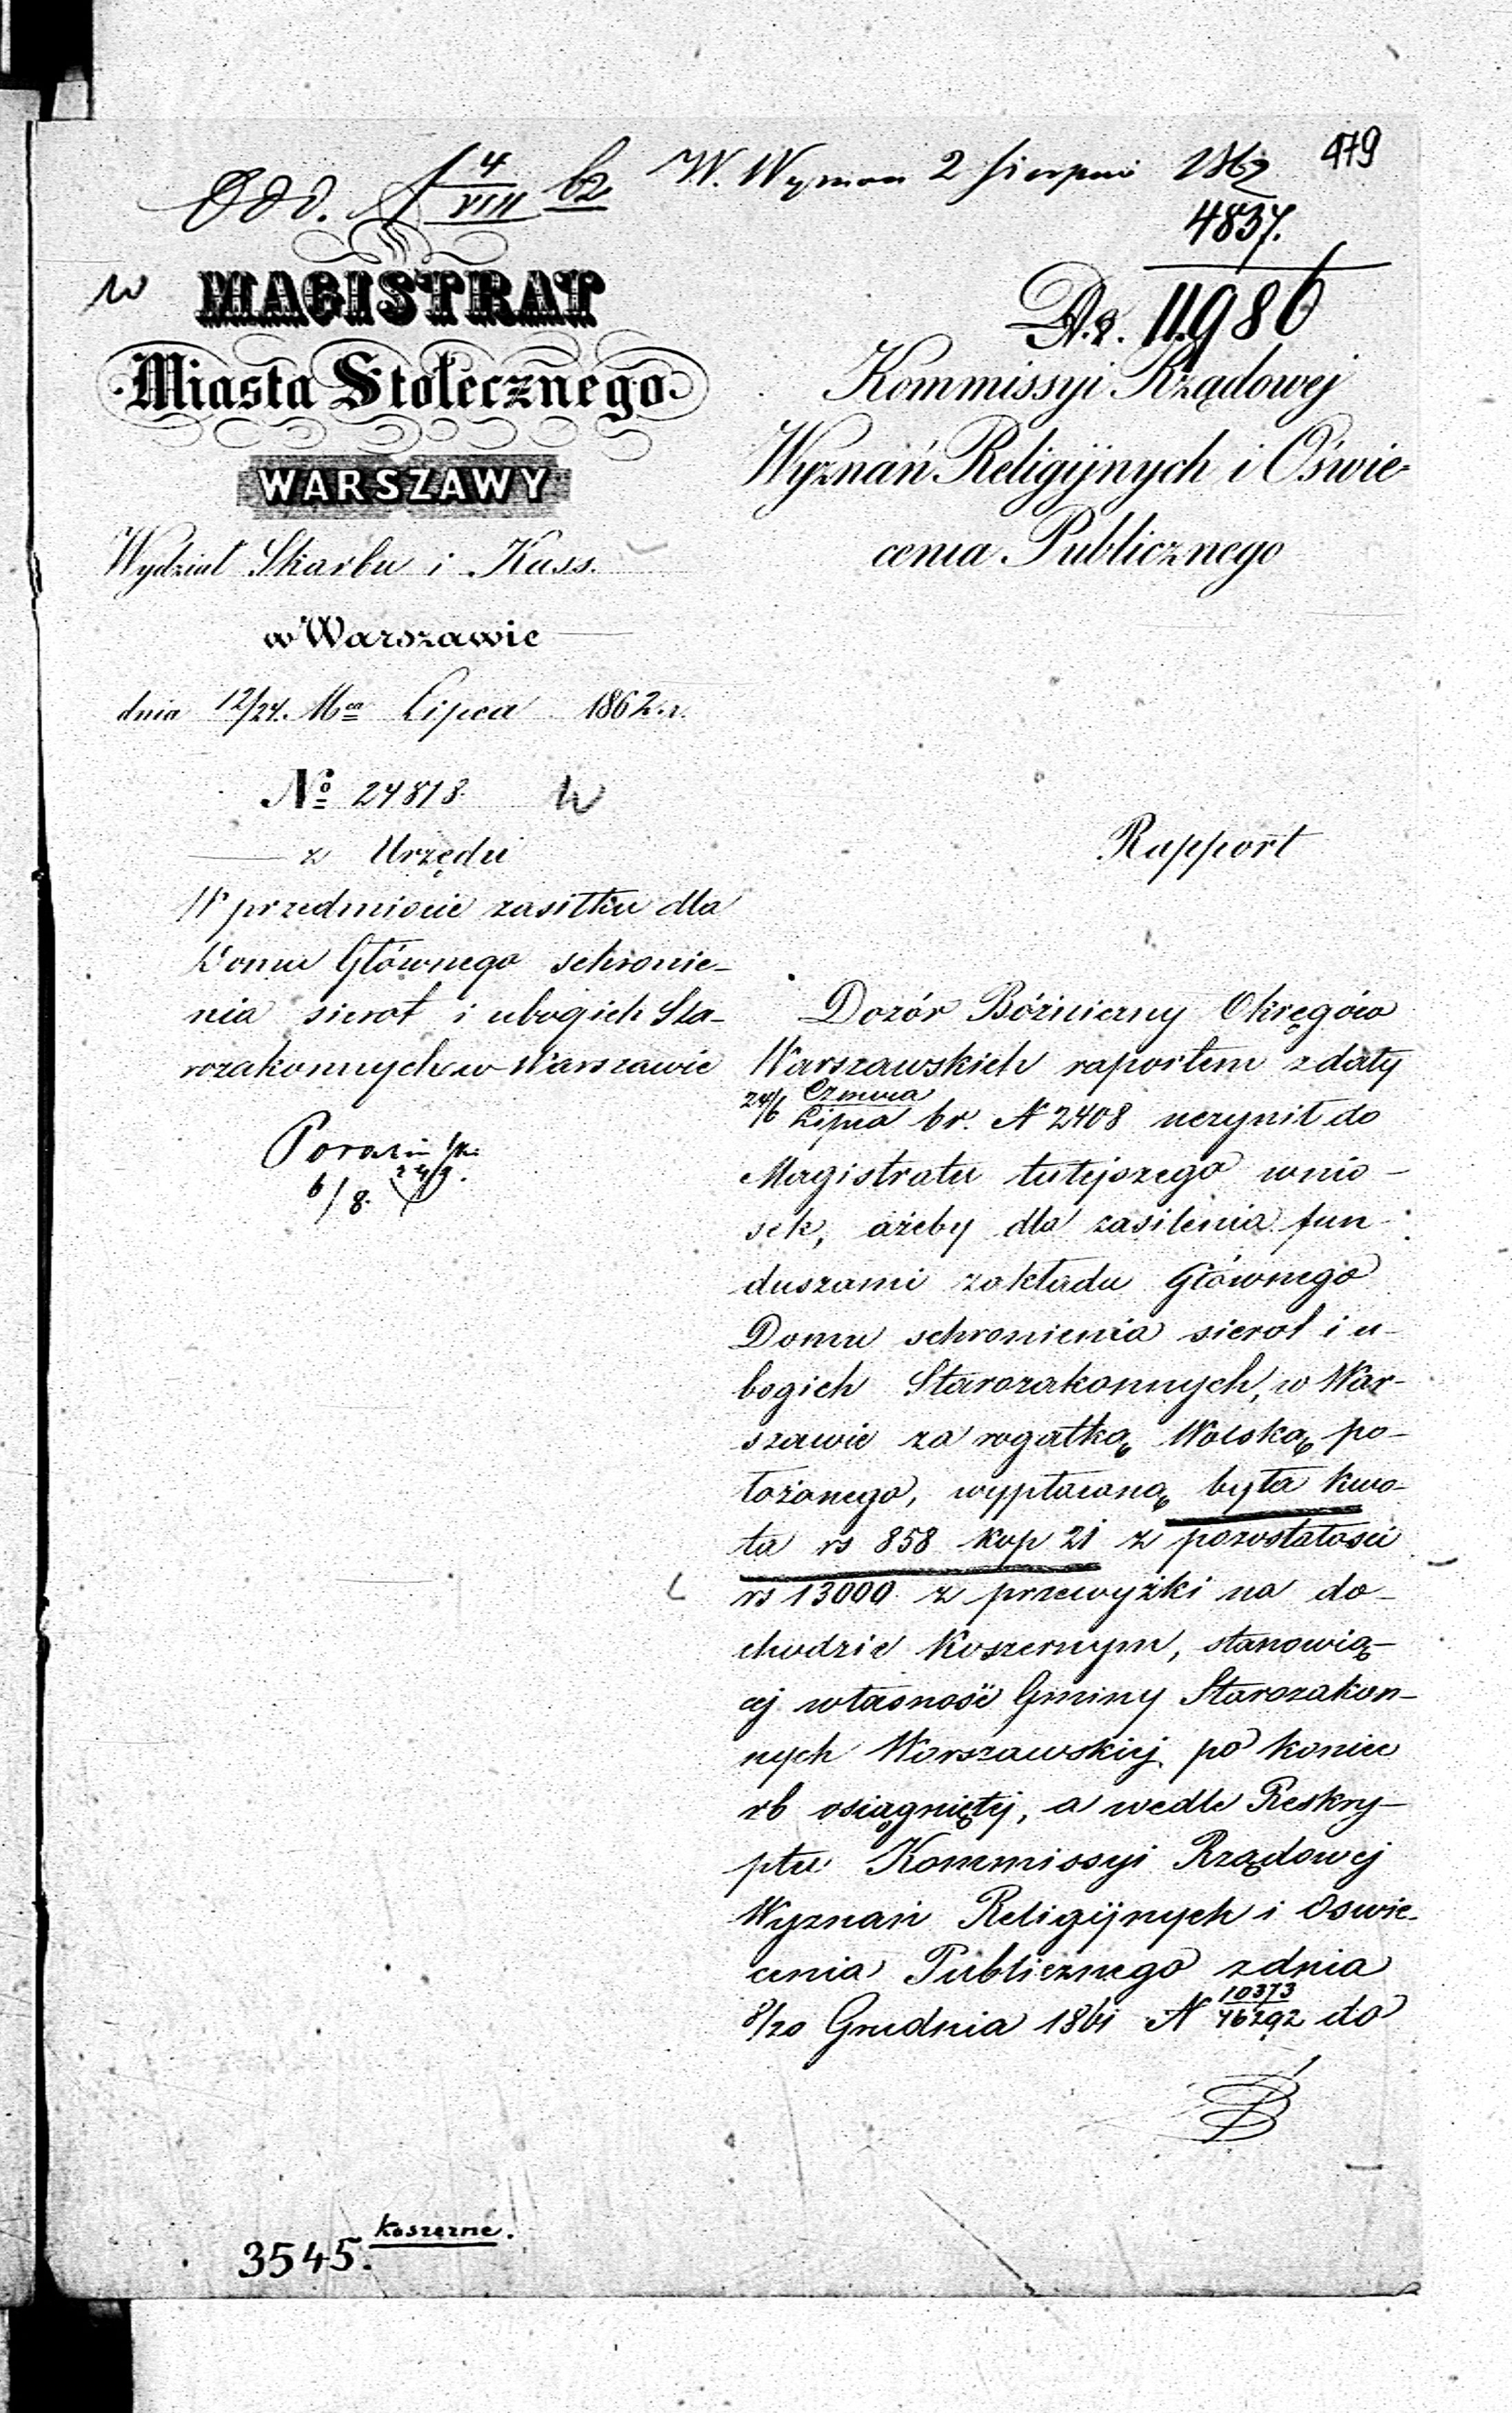 479
W. Wyznań 2 Sierpnia 1862
Odd. 4/VIII 62
4837.
11986
w
MAGISTRAT
Miasta Stołecznego
WARSZAWY
Wydział Skarbu i Kass.
w Warszawie
dnia 12/24. Mca Lipca 1862 r.
No 24818
z Urzędu
W przedmiocie zasiłku dla
Domu Głównego schronie-
nia sierot i ubogich Sta-
rozakonnych w Warszawie
6/8.
Kommissyi Rządowej
Wyznań Religijnych i Oświe-
cenia Publicznego
Rapport
Dozór Bóżniczny Okręgów
Warszawskich raportem z daty
24/6 Czerwca/Lipca br. N 2408 uczynił do
Magistratu tutejszego wnio-
sek, ażeby dla zasilenia fun-
duszami zakładu Głównego
Domu schronienia sierot i u-
bogich Starozakonnych, w War-
szawie za rogatką Wolską po-
łożonego, wypłacaną była kwo-
ta rs 858 kop 21 z pozostałości
rs 13000 z przewyżki na do-
chodzie Koszernym, stanowią-
cej własność Gminy Starozakon-
nych Warszawskiej, po koniec
rb osiągniętej, a wedle Reskry-
ptu Kommissyi Rządowej
Wyznań Religijnych i Oswie-
cenia Publicznego z dnia
8/20 Grudnia 1861 N 10373/46292 do
koszerne.
3545.